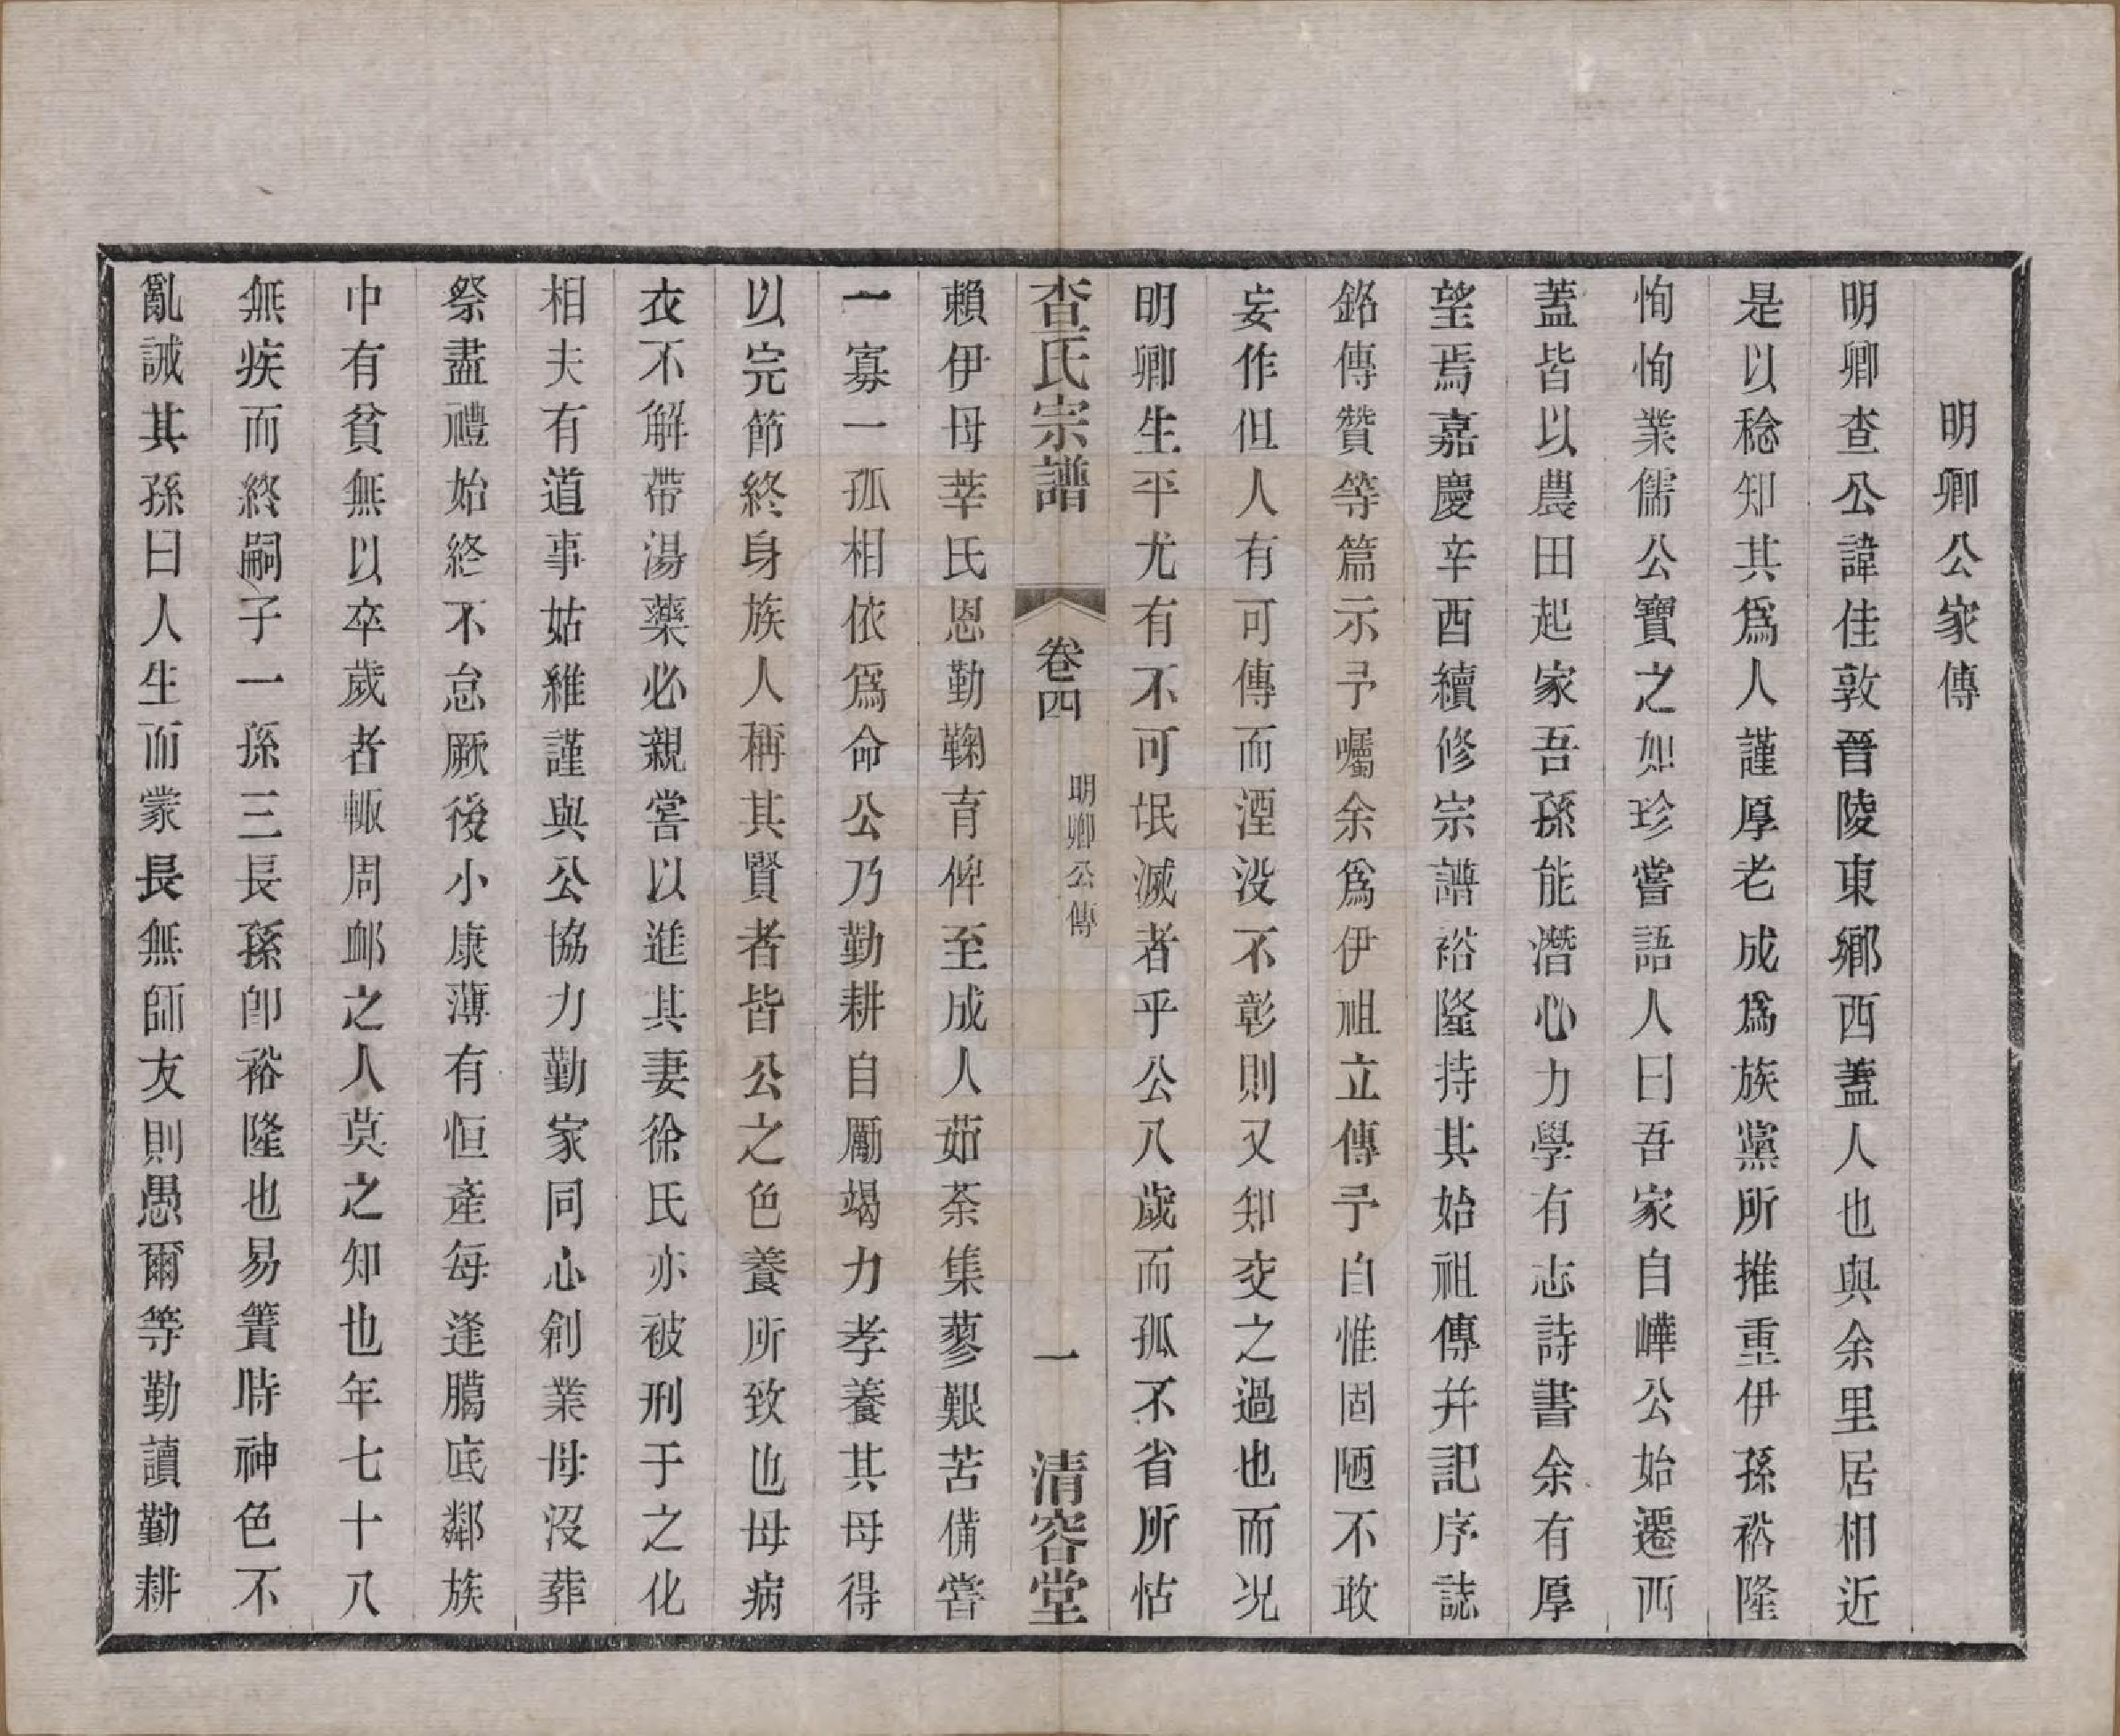 明卿公家傳
明卿查公諱佳敦晉陵東鄉西蓋人也與余里居相近
是以稔知其爲人謹厚老成爲族黨所推重伊孫裕隆
恂恂業儒公寶之如珍嘗語人曰吾家自嶧公始遷西
蓋皆以農田起家吾孫能潛心力學有志詩書余有厚
望焉嘉慶辛酉續修宗譜裕隆持其始祖傳并記序誌
銘傳贊等篇示予囑余爲伊祖立傳予自惟固陋不敢
妄作但人有可傳而湮没不彰則又知交之過也而况
明卿生平尤有不可泯滅者乎公八歲而孤不省所怙
查氏宗譜
卷四
明卿公傳
一
清容堂
賴伊母莘氏恩勤鞠育俾至成人茹荼集蓼艱苦備嘗
一寡一孤相依爲命公乃勤耕自勵竭力孝養其母得
以完節終身族人稱其賢者皆公之色養所致也母病
衣不解帶湯藥必親嘗以進其妻徐氏亦被刑于之化
相夫有道事姑維謹與公協力勤家同心創業母沒葬
祭盡禮始終不怠厥後小康薄有恒產每逢臈底鄰族
中有貧無以卒歲者輒周䘏之人莫之知也年七十八
無疾而終嗣子一孫三長孫卽裕隆也易簀時神色不
亂誡其孫曰人生而蒙長無師友則愚爾等勤讀勤耕